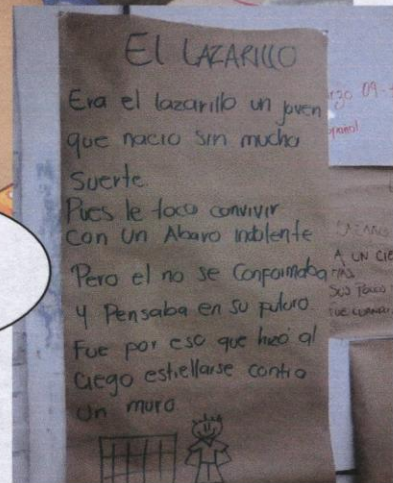 El LAZARILLO
Era el lazarillo un joven
que nacio sin mucha
Suerte
Pues le toco convivir
con un Abaro indolente
Pero el no se conformaba
y Pensaba en su futuro
Fue por eso que hizo al
ciego estrellarse contra
un muro
A UN CIE